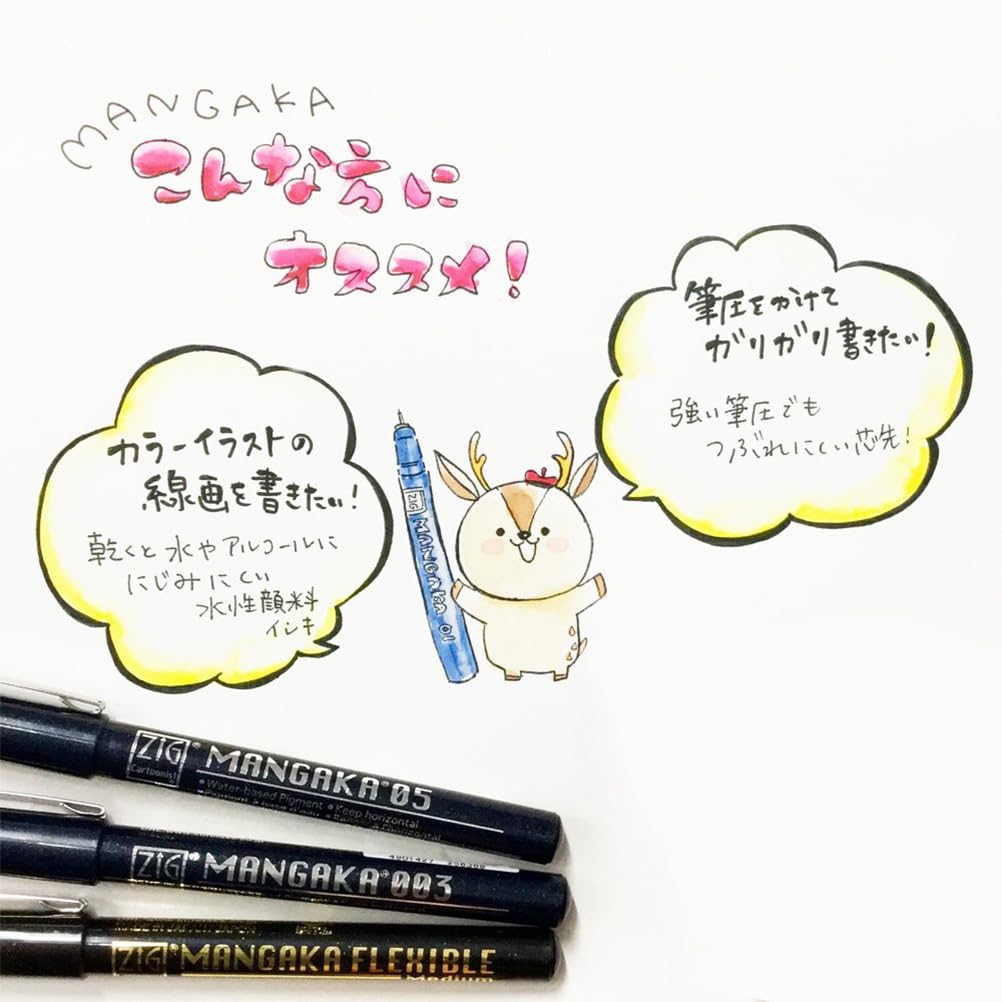 MANGAKA
こんな方に
オススメ!
筆圧をかけて
ガリガリ書きたい!
強い筆圧でも
つぶれにくい芯先!
カラーイラストの
線画を書きたい!
乾くと水やアルコールに
にじみにくい
水性顔料
インキ
ZIG MANGAKA 01
ZIG® MANGAKA®05
Cartoonist
•Water-based Pigment •Keep horizontal
ZIG® MANGAKA®003
ZIG® MANGAKA FLEXIBLE
Medium